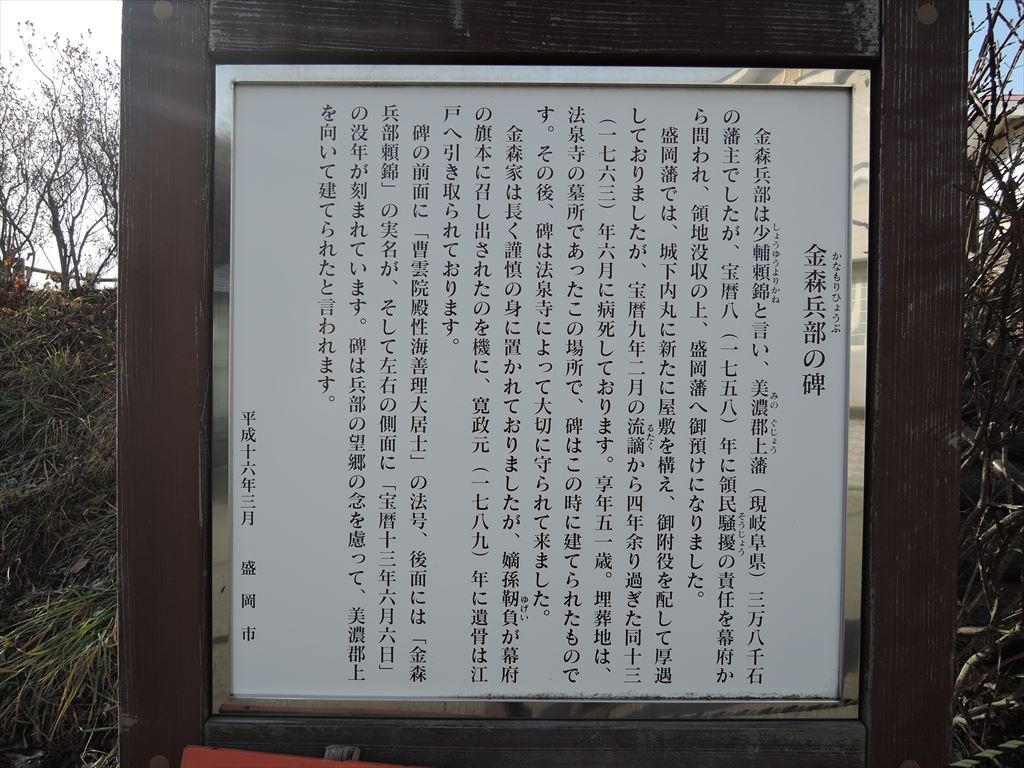 金森兵部の碑
かなもりひょうぶ
金森兵部は少輔頼錦と言い、美濃郡上藩（現岐阜県）三万八千石
しょうゆうよりかね
みの ぐじょう
の藩主でしたが、宝暦八（一七五八）年に領民騒擾の責任を幕府か
そうじょう
ら問われ、領地没収の上、盛岡藩へ御預けになりました。
盛岡藩では、城下内丸に新たに屋敷を構え、御附役を配して厚遇
しておりましたが、宝暦九年二月の流謫から四年余り過ぎた同十三
るたく
（一七六三）年六月に病死しております。享年五一歳。埋葬地は、
法泉寺の墓所であったこの場所で、碑はこの時に建てられたもので
す。その後、碑は法泉寺によって大切に守られて来ました。
金森家は長く謹慎の身に置かれておりましたが、嫡孫靭負が幕府
ゆげい
の旗本に召し出されたのを機に、寛政元（一七八九）年に遺骨は江
戸へ引き取られております。
碑の前面に「曹雲院殿性海善理大居士」の法号、後面には「金森
兵部頼錦」の実名が、そして左右の側面に「宝暦十三年六月六日」
の没年が刻まれています。碑は兵部の望郷の念を慮って、美濃郡上
を向いて建てられたと言われます。
平成十六年三月 盛岡市